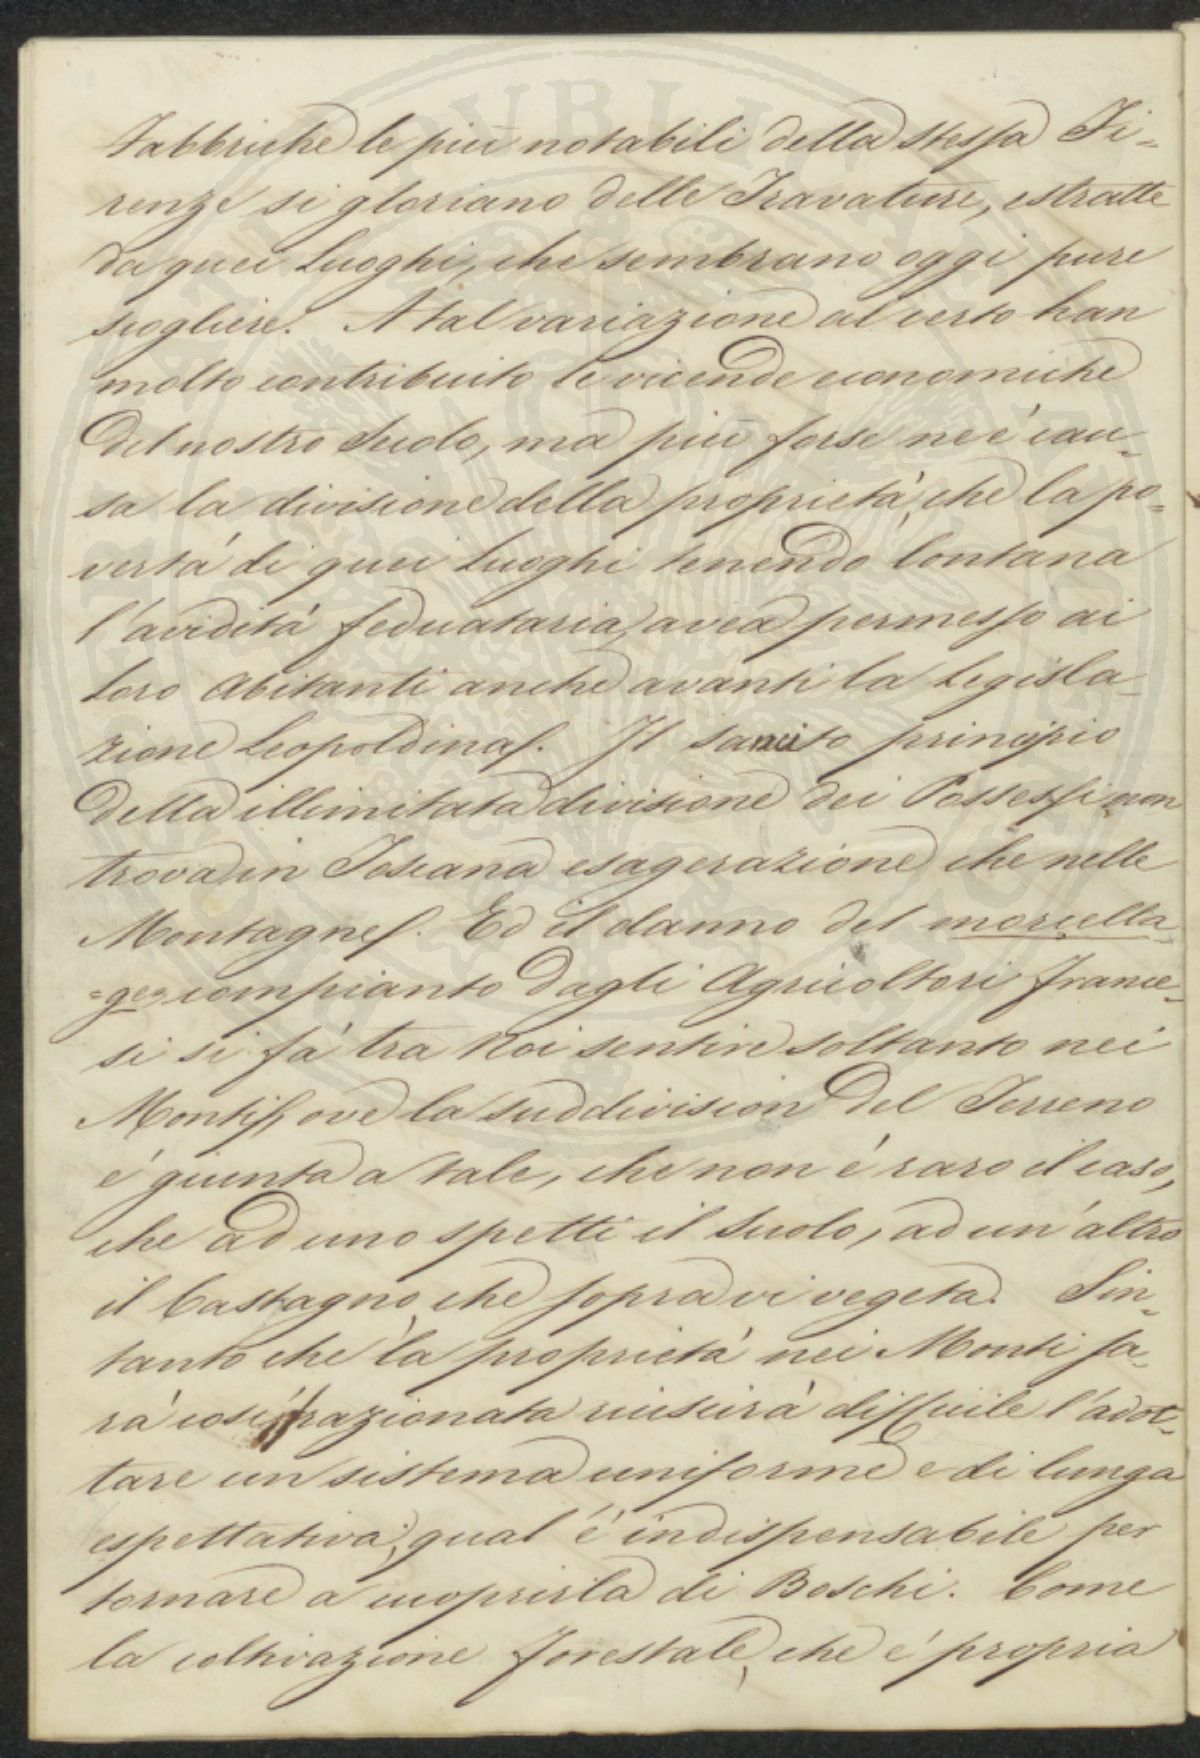 Fabbriche le più notabili della stessa Fi=
renze si gloriano delle Travature, estratte
da quei Luoghi, che sembrano oggi pure
scogliere. A tal variazione al certo han
molto contribuito le vicende economiche
del nostro Suolo, ma più forse ne è cau=
sa la divisione della proprietà, che la po=
vertà di quei Luoghi tenendo lontana
l'avidità feduataria, avea permesso ai
Loro Abitanti anche avanti la Legisla=
zione Leopoldina. Il sancito principio
della illimitata divisione dei Possessi non
trova in Toscana esagerazione che nelle
Montagne. Ed il danno del morcella=
=ge, compianto dagli Agricoltori france=
si si fà tra Noi sentire soltanto nei
Monti, ove la suddivision del Terreno
è giunta a tale, che non è raro il caso,
che ad uno spetti il Suolo, ad un'altro
il Castagno che sopra vi vegeta. Sin=
tanto che la proprietà nei Monti sa=
rà così frazionata riuscirà difficile l'adot=
tare un sistema uniforme e di lunga
espettativa, qual è indispensabile per
tornare a ricoprirla di Boschi. Come
la coltivazione forestale, che è propria